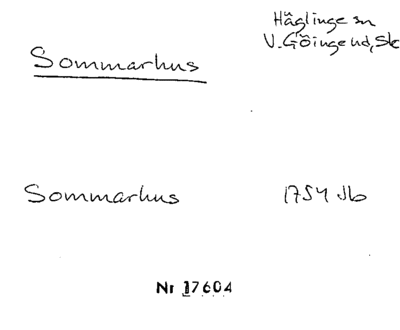 Häglinge sn
V. Göinge hd, Sk
Sommarhus
Sommarhus 1754 Jb
Nr 17604